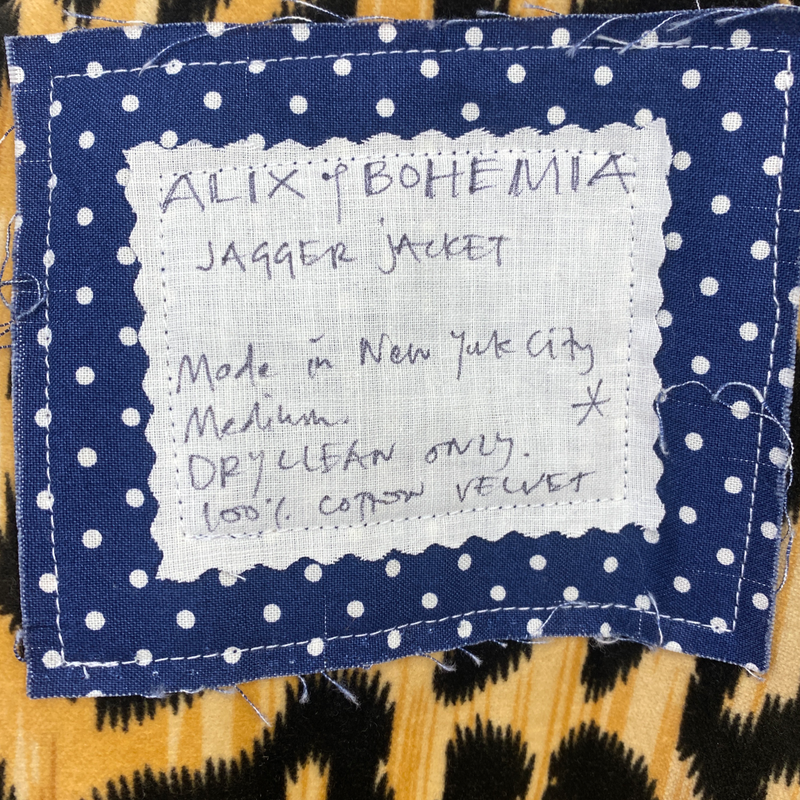 ALIX of BOHEMIA
JAGGER JACKET
Made in New York City
Medium. *
DRY CLEAN ONLY.
100% COTTON VELVET